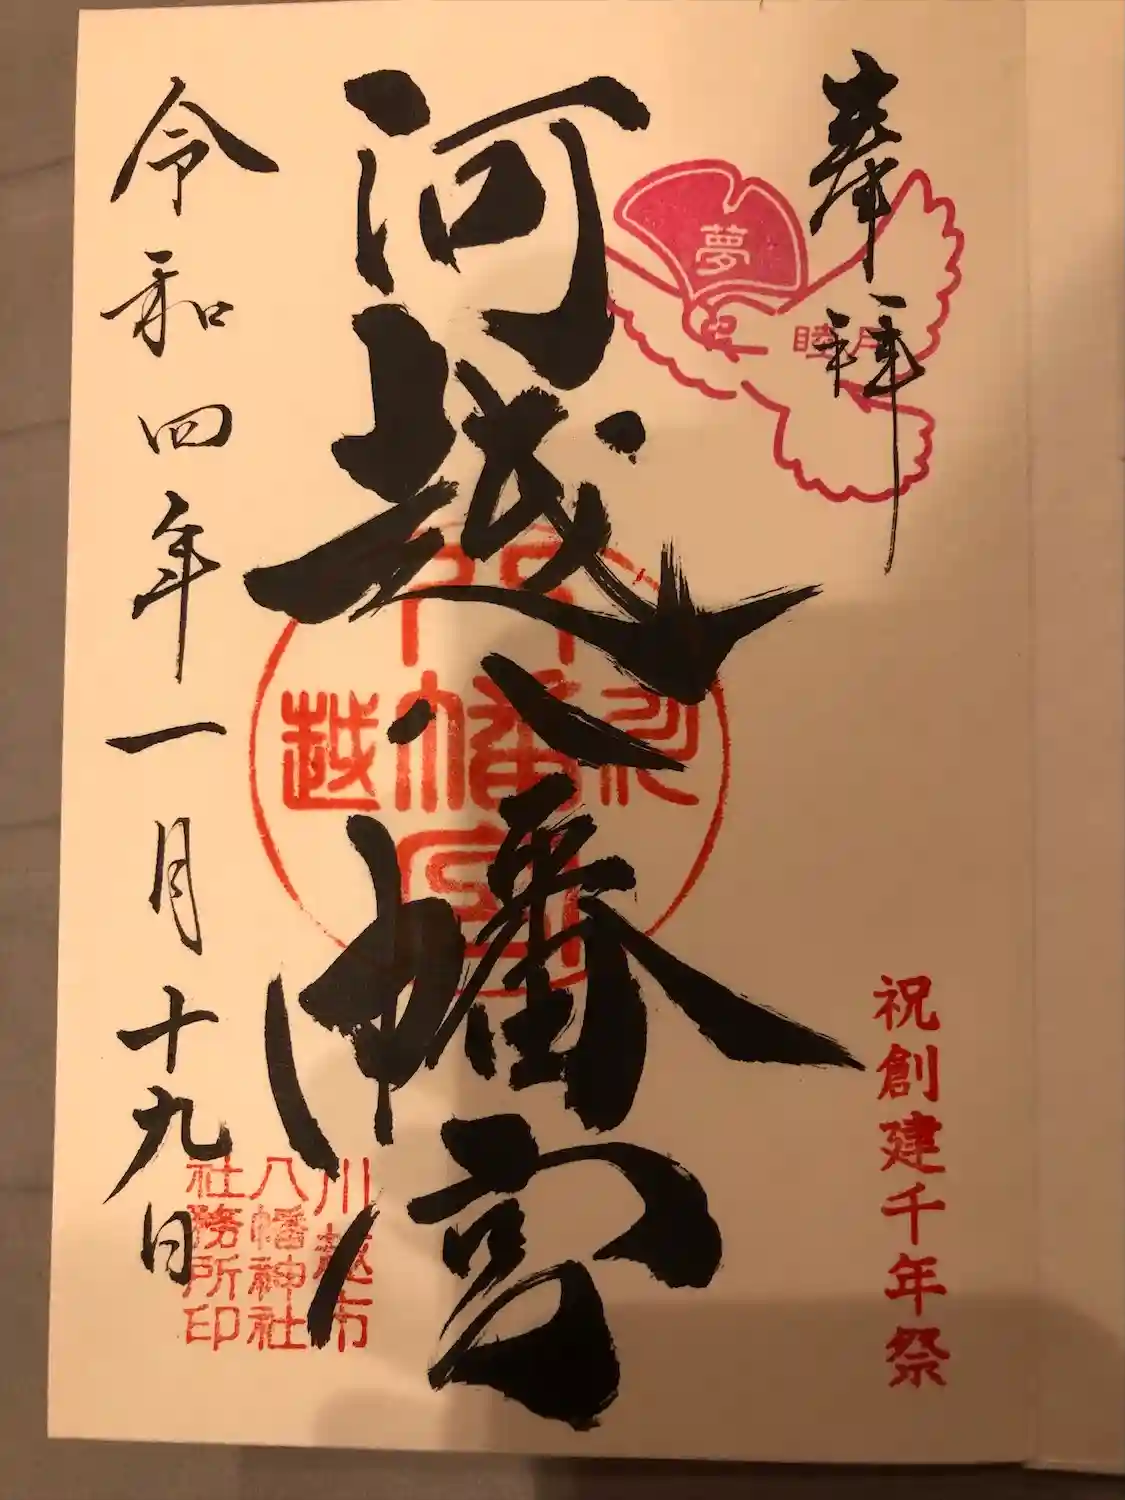 奉拝
夢
睦月
祝創建千年祭
河越八幡宮
越
幡
宮
川越市
八幡神社
社務所印
令和四年一月十九日